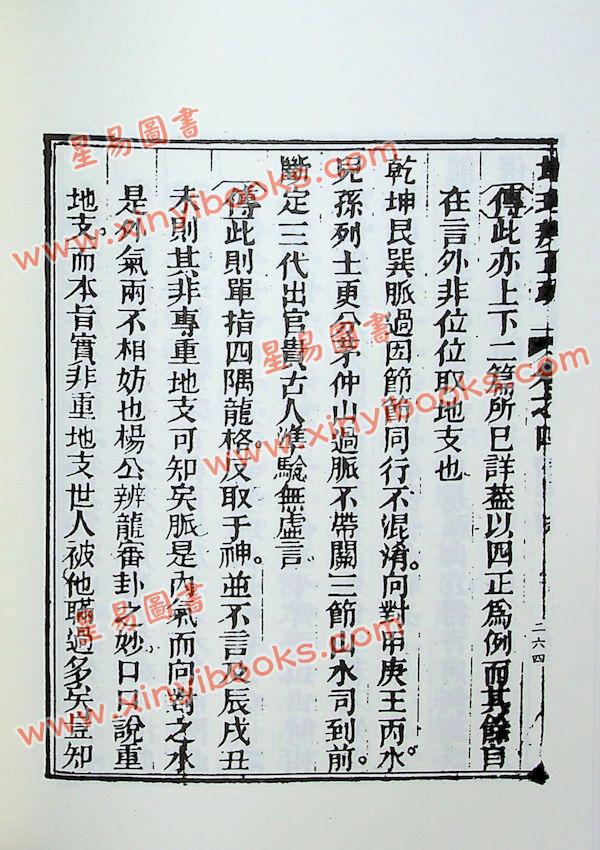 卷之四
二六四
傳此亦上下二篇所已詳葢以四正為例而其餘自
在言外非位位取地支也
乾坤艮巽脈過因節節同行不混淆。向對甲庚王丙水。
兒孫列士更分茅仲山過脈不帶關三節山水司到前。
斷定三代出官貴古人準驗無虛言
傳此則單指四隅龍格。反取于神。並不言及辰戌丑
未則其非專重地支可知矣脈是內氣而向對之水
是外氣兩不相妨也楊公辨龍審卦之妙口口說重
地支。而本旨實非重地支世人被他瞞過多矣豈知
星易圖書
www.xinyibooks.com
星易圖書
www.xinyibooks.com
星易圖書
www.xinyibooks.com